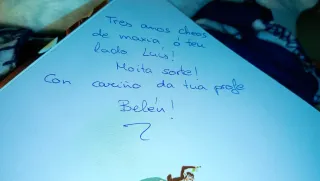 Tres anos cheos
de maxia, ó teu
lado Luis!
Moita sorte!
Con cariño da tua profe
Belén!